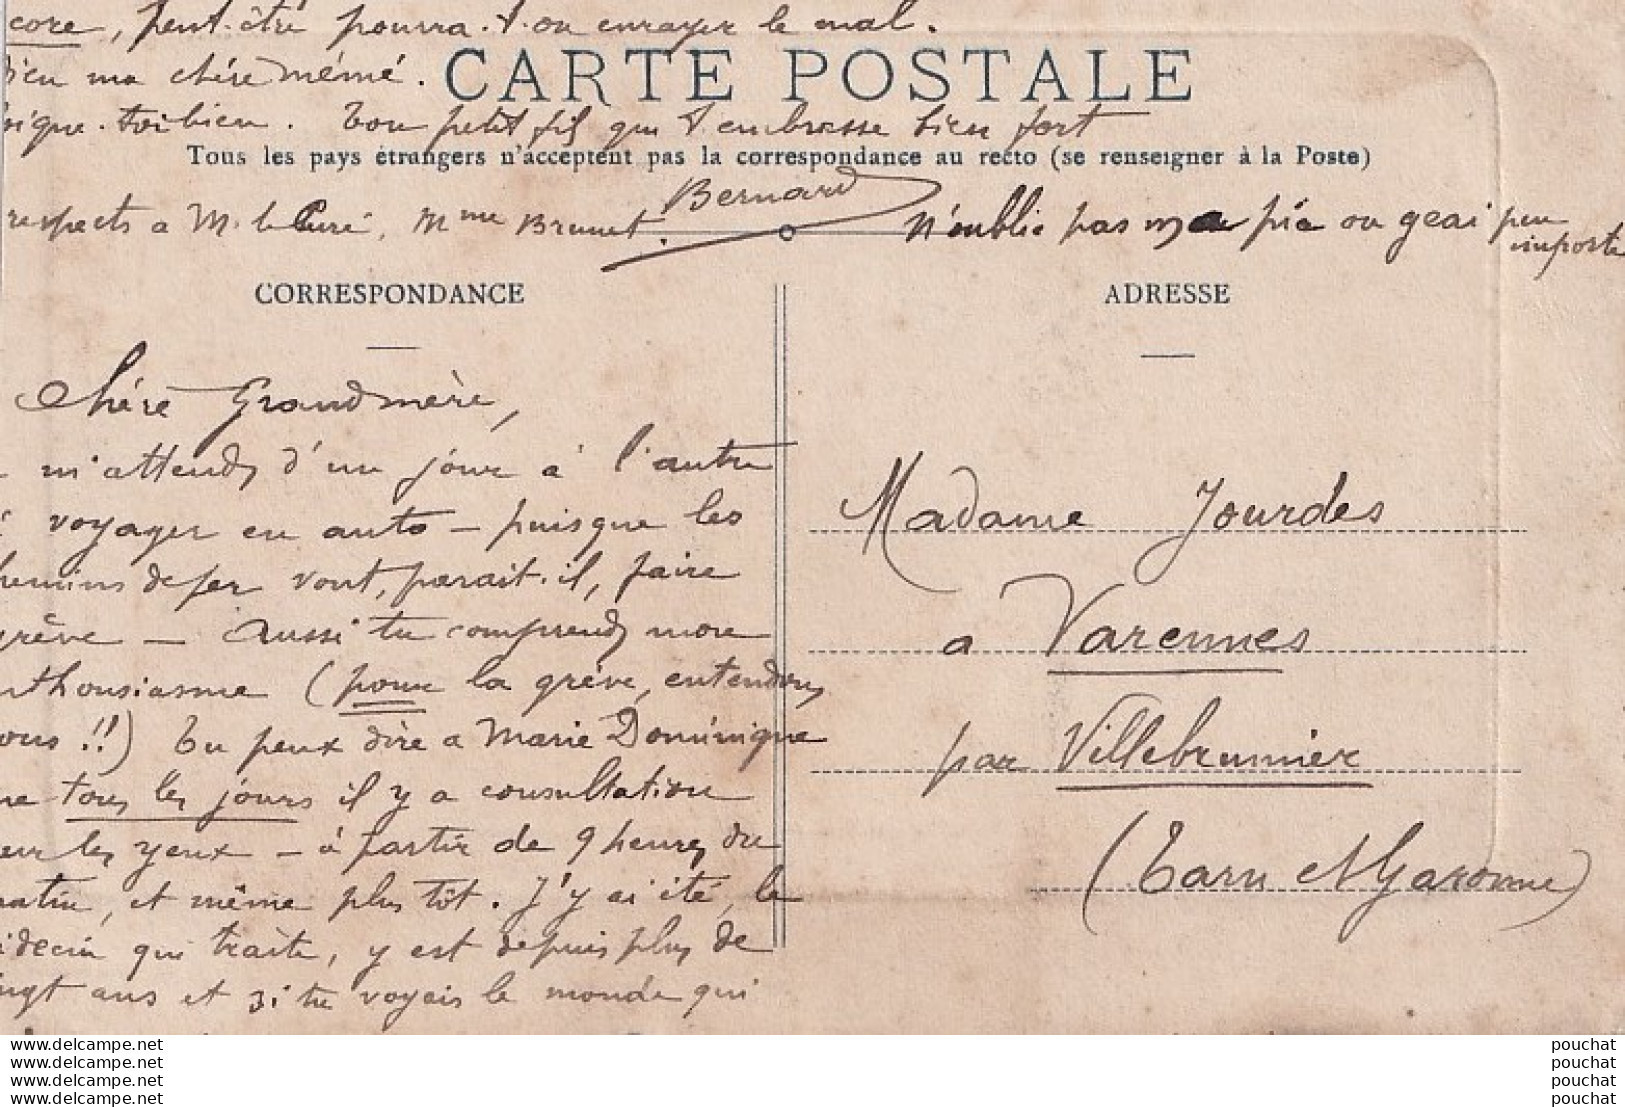 core, peut-être pourra-t-on enrayer le mal.
bien ma chère mémé.
CARTE POSTALE
soigne-toi bien. Ton petit fils qui t'embrasse bien fort
Tous les pays étrangers n'acceptent pas la correspondance au recto (se renseigner à la Poste)
Bernard
respects a M. le Curé, Mme Brunet.
N'oublie pas ma pie ou geai peu
importe
CORRESPONDANCE
Chère Grandmère,
m'attends d'un jour à l'autre
à voyager en auto — puisque les
chemins de fer vont, parait-il, faire
grève — Aussi tu comprends mon
enthousiasme (pour la grève, entendons
nous !!) Tu peux dire a Marie Dominique
que tous les jours il y a consultation
pour les yeux — à partir de 9 heures du
matin, et même plus tôt. J'y ai été, le
médecin qui traite, y est depuis plus de
vingt ans et si tu voyais le monde qui
ADRESSE
Madame Jourdes
a Varennes
par Villebrumier
(Tarn et Garonne)
www.delcampe.net
www.delcampe.net
www.delcampe.net
www.delcampe.net
pouchat
pouchat
pouchat
pouchat